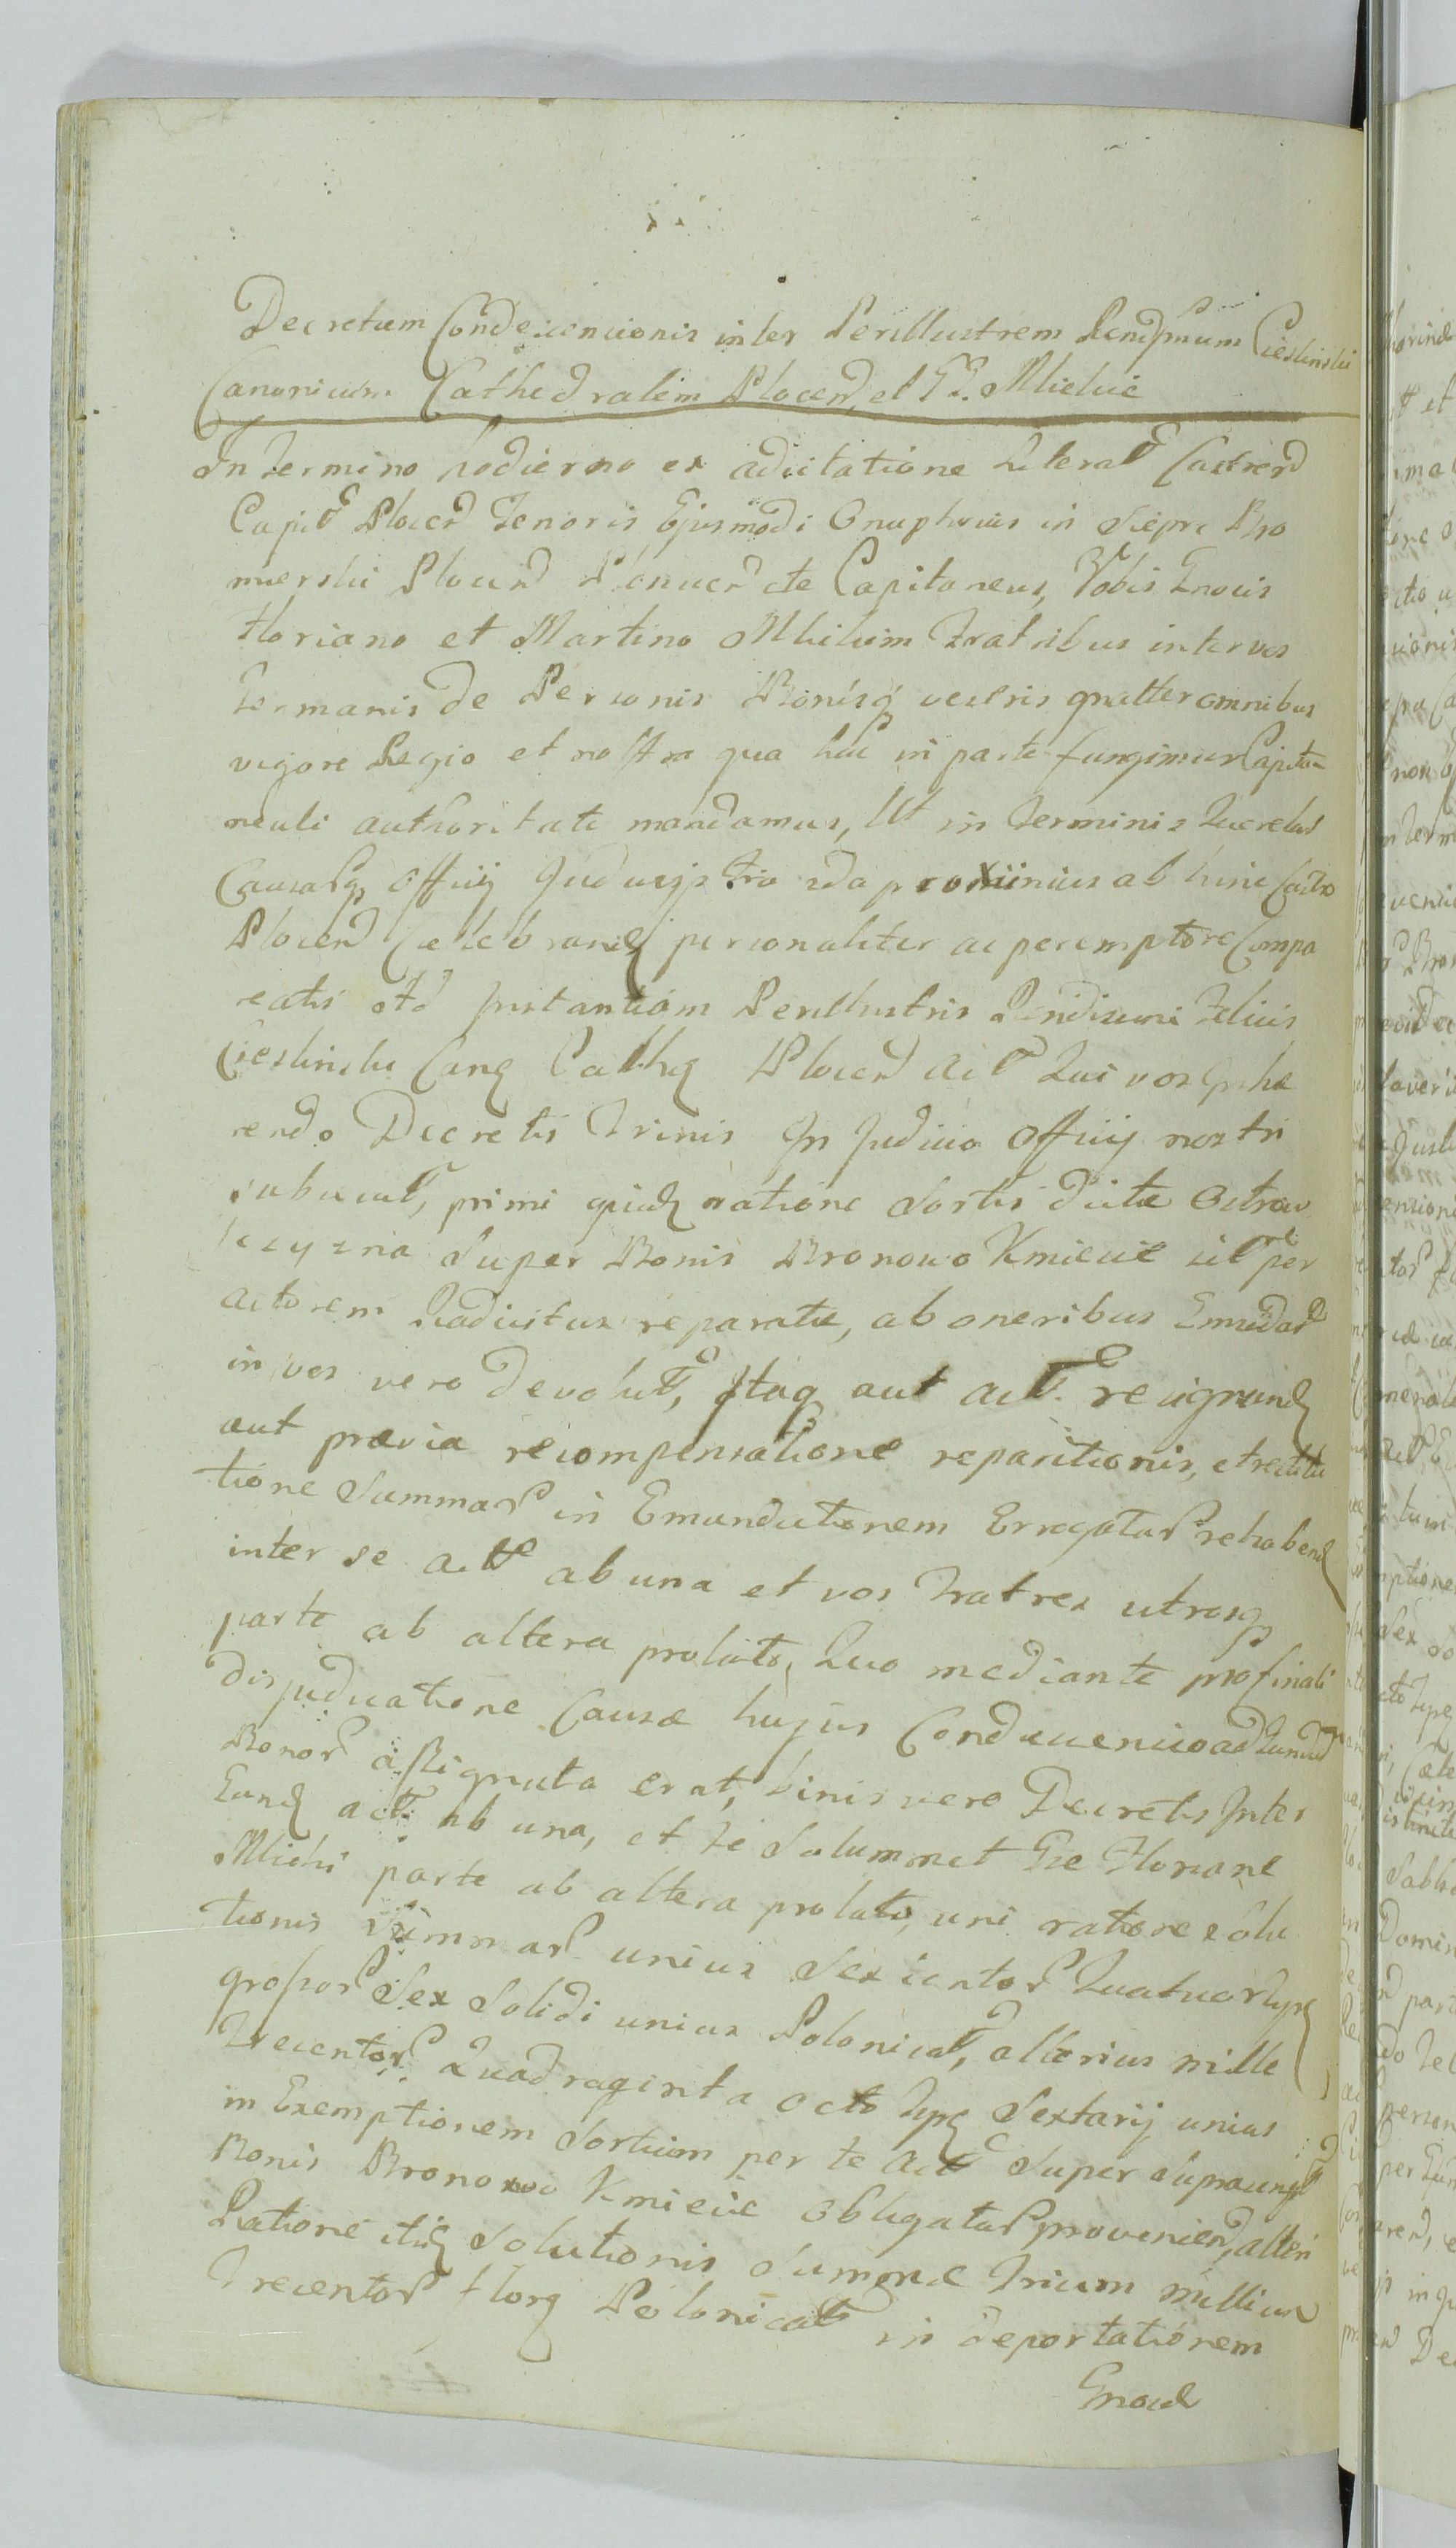 Decretum Condescensionis inter Perillustrem Rendssmum Cieslinski
Canonicum Cathedralem Plocen et GG. Mlickie
In Termino hodierno ex adcitatione Literat Castren
Capit Plocen Tenoris Ejusmodi Onuphrius in Siepre Bro
mierski Plocen etc Capitaneus, Vobis Gnosis
Floriano et Martino Mlickim Fratribus inter vos
Germanis de Personis Bonisq vestris gnalter omnibus
vigore Regio et nostra qua hac in parte fungimur Capita
neali authoritate mandamus, Ut in Terminis Querelar
Causarq Officij Judicijs pro xiimius ab hinc Castro
Plocen Celebrand personaliter ac peremptore Compa
reatis Instantiam Perillustris Rendissimi Felicis
Cieslinski Can Cathe Plocen Act Qui vos Inhe
rendo Decretis Trinis In Judicio Officij nostri
subsecut, primi quid ratione Sortis dicte Ostrow
czyzna Super Bonis Bronowo Kmiecie sit per
actorem reparate, ab oneribus Emundat
in vos vero devolut, Itaq aut act. resignand
aut prævia recompensatione reparitionis, et restitu
tione Summar in Emundationem Errogatar rehabend
inter se act ab una et vos Fratres utrosq
parte ab altera prolato, Quo mediante pro finali
disjudicatione Causæ hujus Condescensio ad fundum
Bonor assignata erat, binis vero Decretis Inter
Eund act ab una, et te Solummet Gse Floriane
Mlicki parte ab altera prolato, uni ratione solu
tionis Summar unius Sexcentor Quatuor Tynf
grossor Sex Solidi unius Polonical, alterius mille
Trecentor Quadraginta octo Tynf Sextarij unius
in Exemptionem Sortium per te Act Super
Bonis Bronowo Kmiecie obligatar provenien, alteri
Ratione itid Solutionis Summæ Trium millium
Trecentor flor Polonical in deportationem
Gnosæ